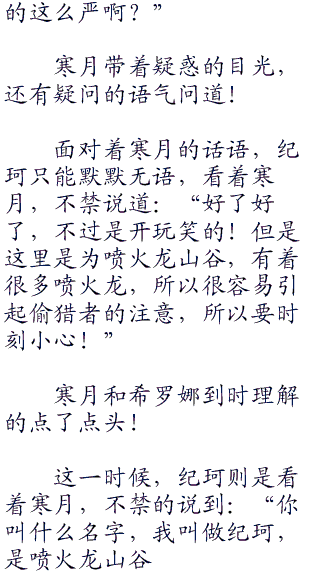 的这么严啊？”
寒月带着疑惑的目光，
还有疑问的语气问道！
面对着寒月的话语，纪
珂只能默默无语，看着寒
月，不禁说道：“好了好
了，不过是开玩笑的！但是
这里是为喷火龙山谷，有着
很多喷火龙，所以很容易引
起偷猎者的注意，所以要时
刻小心！”
寒月和希罗娜到时理解
的点了点头！
这一时候，纪珂则是看
着寒月，不禁的说到：“你
叫什么名字，我叫做纪珂，
是喷火龙山谷